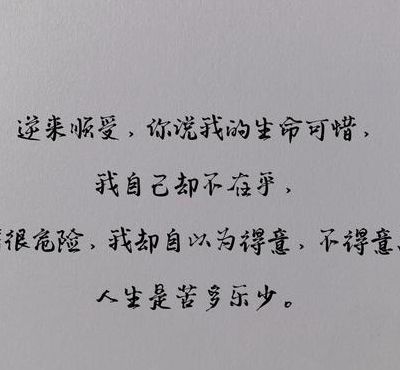 逆来顺受，你说我的生命可惜，
我自己却不在乎，
很危险，我却自以为得意，不得意
人生是苦多乐少。